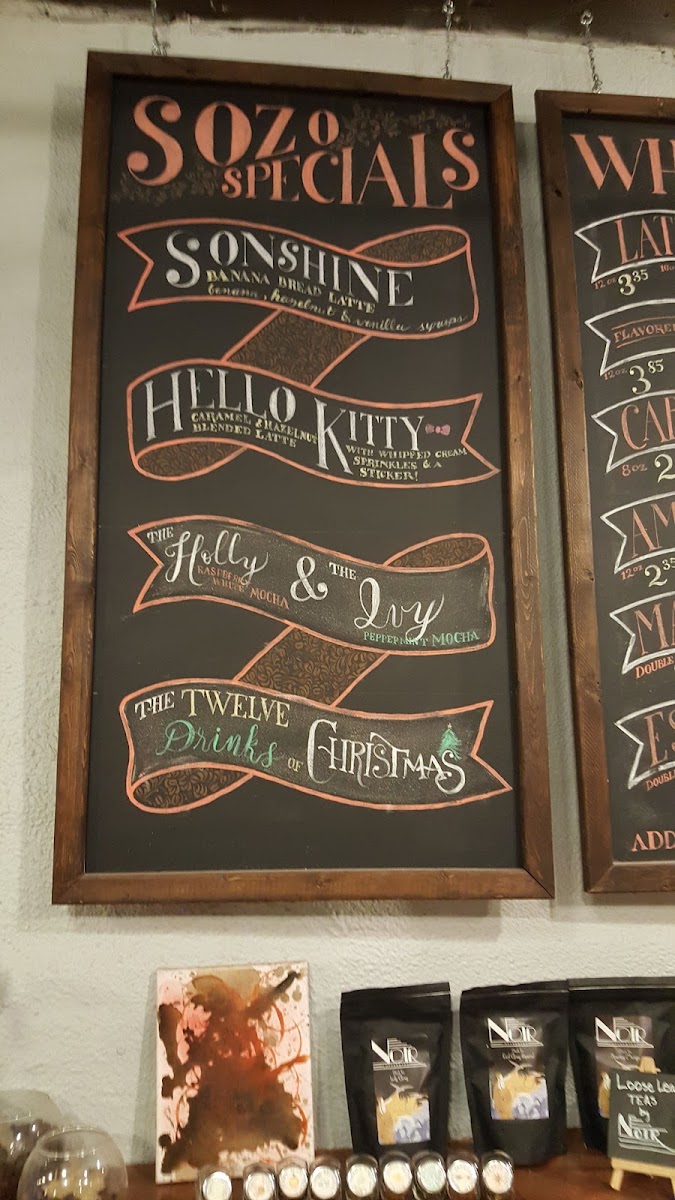 SOZO
SPECIALS
SONSHINE
BANANA BREAD LATTE
banana, hazelnut & vanilla syrups
HELLO KITTY
CARAMEL & HAZELNUT
BLENDED LATTE
WITH WHIPPED CREAM
SPRINKLES & A
STICKER!
THE Holly & THE Ivy
RASPBERRY
WHITE MOCHA
PEPPERMINT MOCHA
THE TWELVE
Drinks OF CHRISTMAS
WH
LAT
12 oz 3.35
FLAVORE
12 oz 3.85
8 oz 2
AM
12 oz 2.35
MA
DOUBLE
ES
DOUBL
ADD
NOIR
NOIR
NOIR
LOOSE LEA
TEAS
by
NOIR